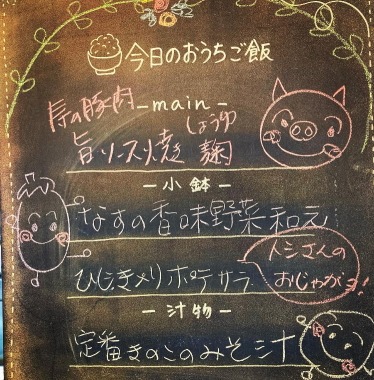 今日のおうちご飯
寿の豚肉 -main-
しょうゆ
旨ソース焼き 麹
-小鉢-
なすの香味野菜和え
トシさんの
おじゃが！
ひじきメリポテサラ
-汁物-
定番きのこのみそ汁